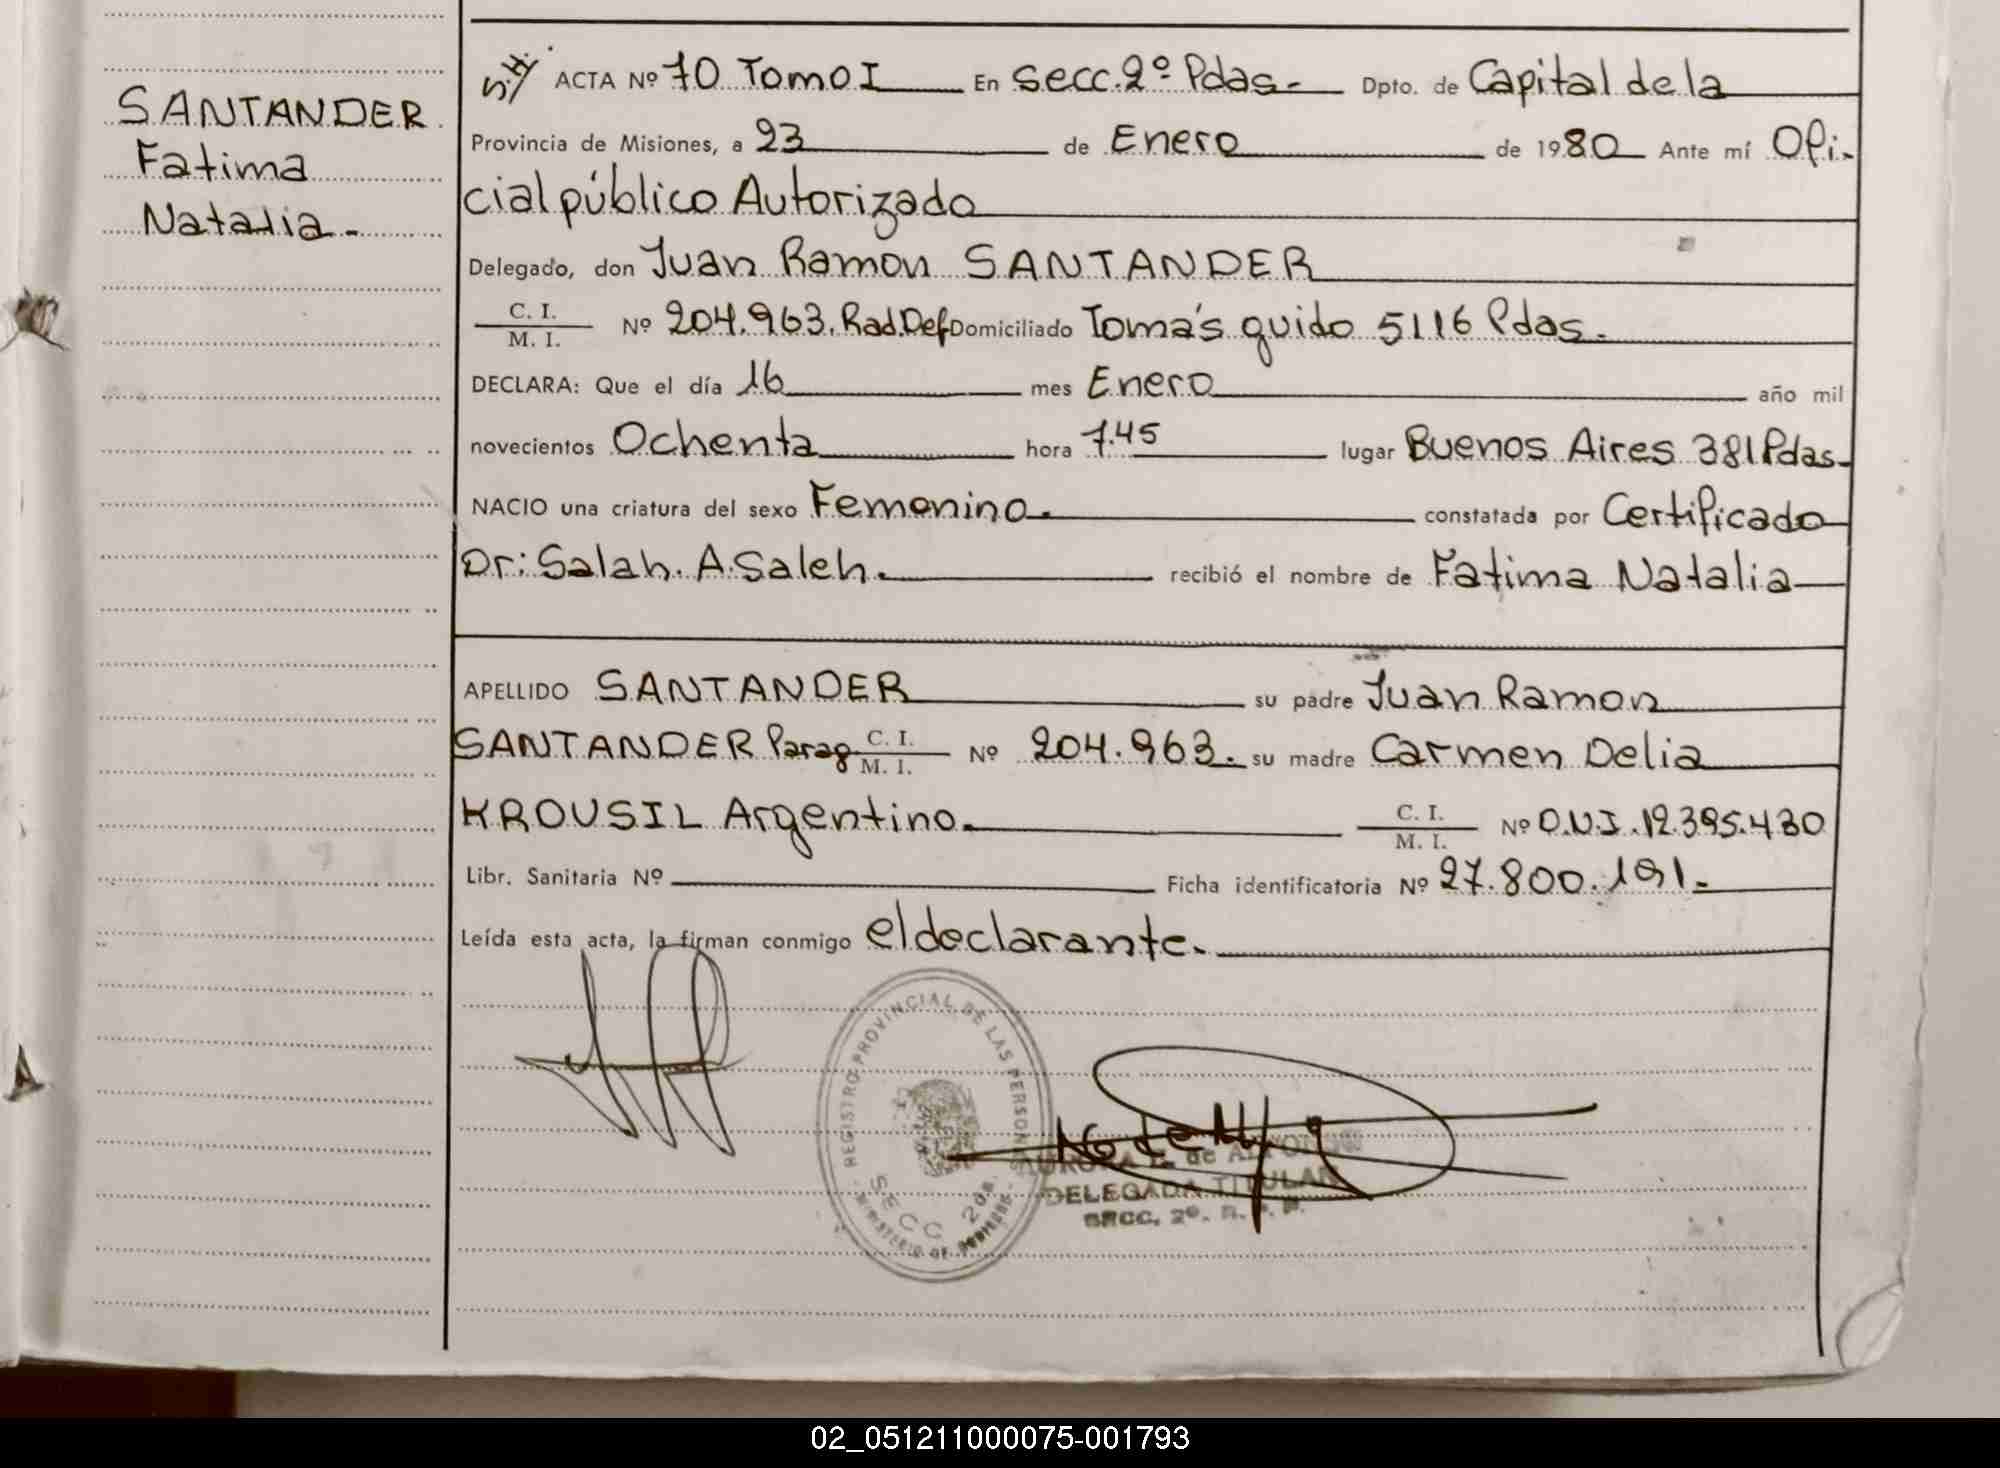 SANTANDER
Fatima
Natalia.-
S.H. ACTA Nº 70 Tomo I En Secc. 2º Pdas.- Dpto. de Capital de la
Provincia de Misiones, a 23 de Enero de 1980 Ante mí Ofi-
cial público Autorizado
Delegado, don Juan Ramon SANTANDER
C. I.
M. I. Nº 204.963. Rad. Def Domiciliado Tomás guido 5116 Pdas.-
DECLARA: Que el día 16 mes Enero año mil
novecientos Ochenta hora 7.45 lugar Buenos Aires 381 Pdas-
NACIO una criatura del sexo Femenino.- constatada por Certificado
Dr: Salah. A. Saleh.- recibió el nombre de Fatima Natalia
APELLIDO SANTANDER su padre Juan Ramon
SANTANDER Parag C. I.
M. I. Nº 204.963.- su madre Carmen Delia
KROUSIL Argentino.- C. I.
M. I. Nº D.N.I. 12.395.430
Libr. Sanitaria Nº Ficha identificatoria Nº 27.800.191.-
Leída esta acta, la firman conmigo el declarante.-
REGISTRO PROVINCIAL DE LAS PERSONAS
SECC 2da.
MINISTERIO DE GOBIERNO
de
DELEGADA TITULAR
SECC. 2º. R. P. P.
02_051211000075-001793